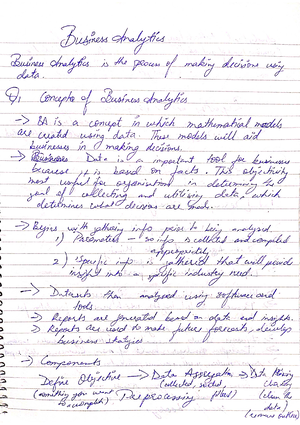 Business Analytics
Business Analytics is the process of making decisions using
data.
Q1 Concepts of Business Analytics
→ BA is a concept in which mathematical models
are created using data. These models will aid
businesses in making decisions.
→ Business Data is a important tool for business
because it is based on facts. This objectivity
most useful for organisation in determining the
goal of collecting and utilising data, which
determines what decisions are made.
→ Begins with gathering info prior to being analysed.
1) Parameters - so info is collected and compiled
appropriately
2) specific info is gathered that will provide
insight into a specific industry need.
→ Datasets then analysed using software and
tools
→ Reports are generated based on data and insights.
→ Reports are used to make future forecasts, develop
business
→ Components
Define Objective → Data Aggregation → Data Mining
(something you want to accomplish) Preprocessing (collected, sorted, (clean the
data)